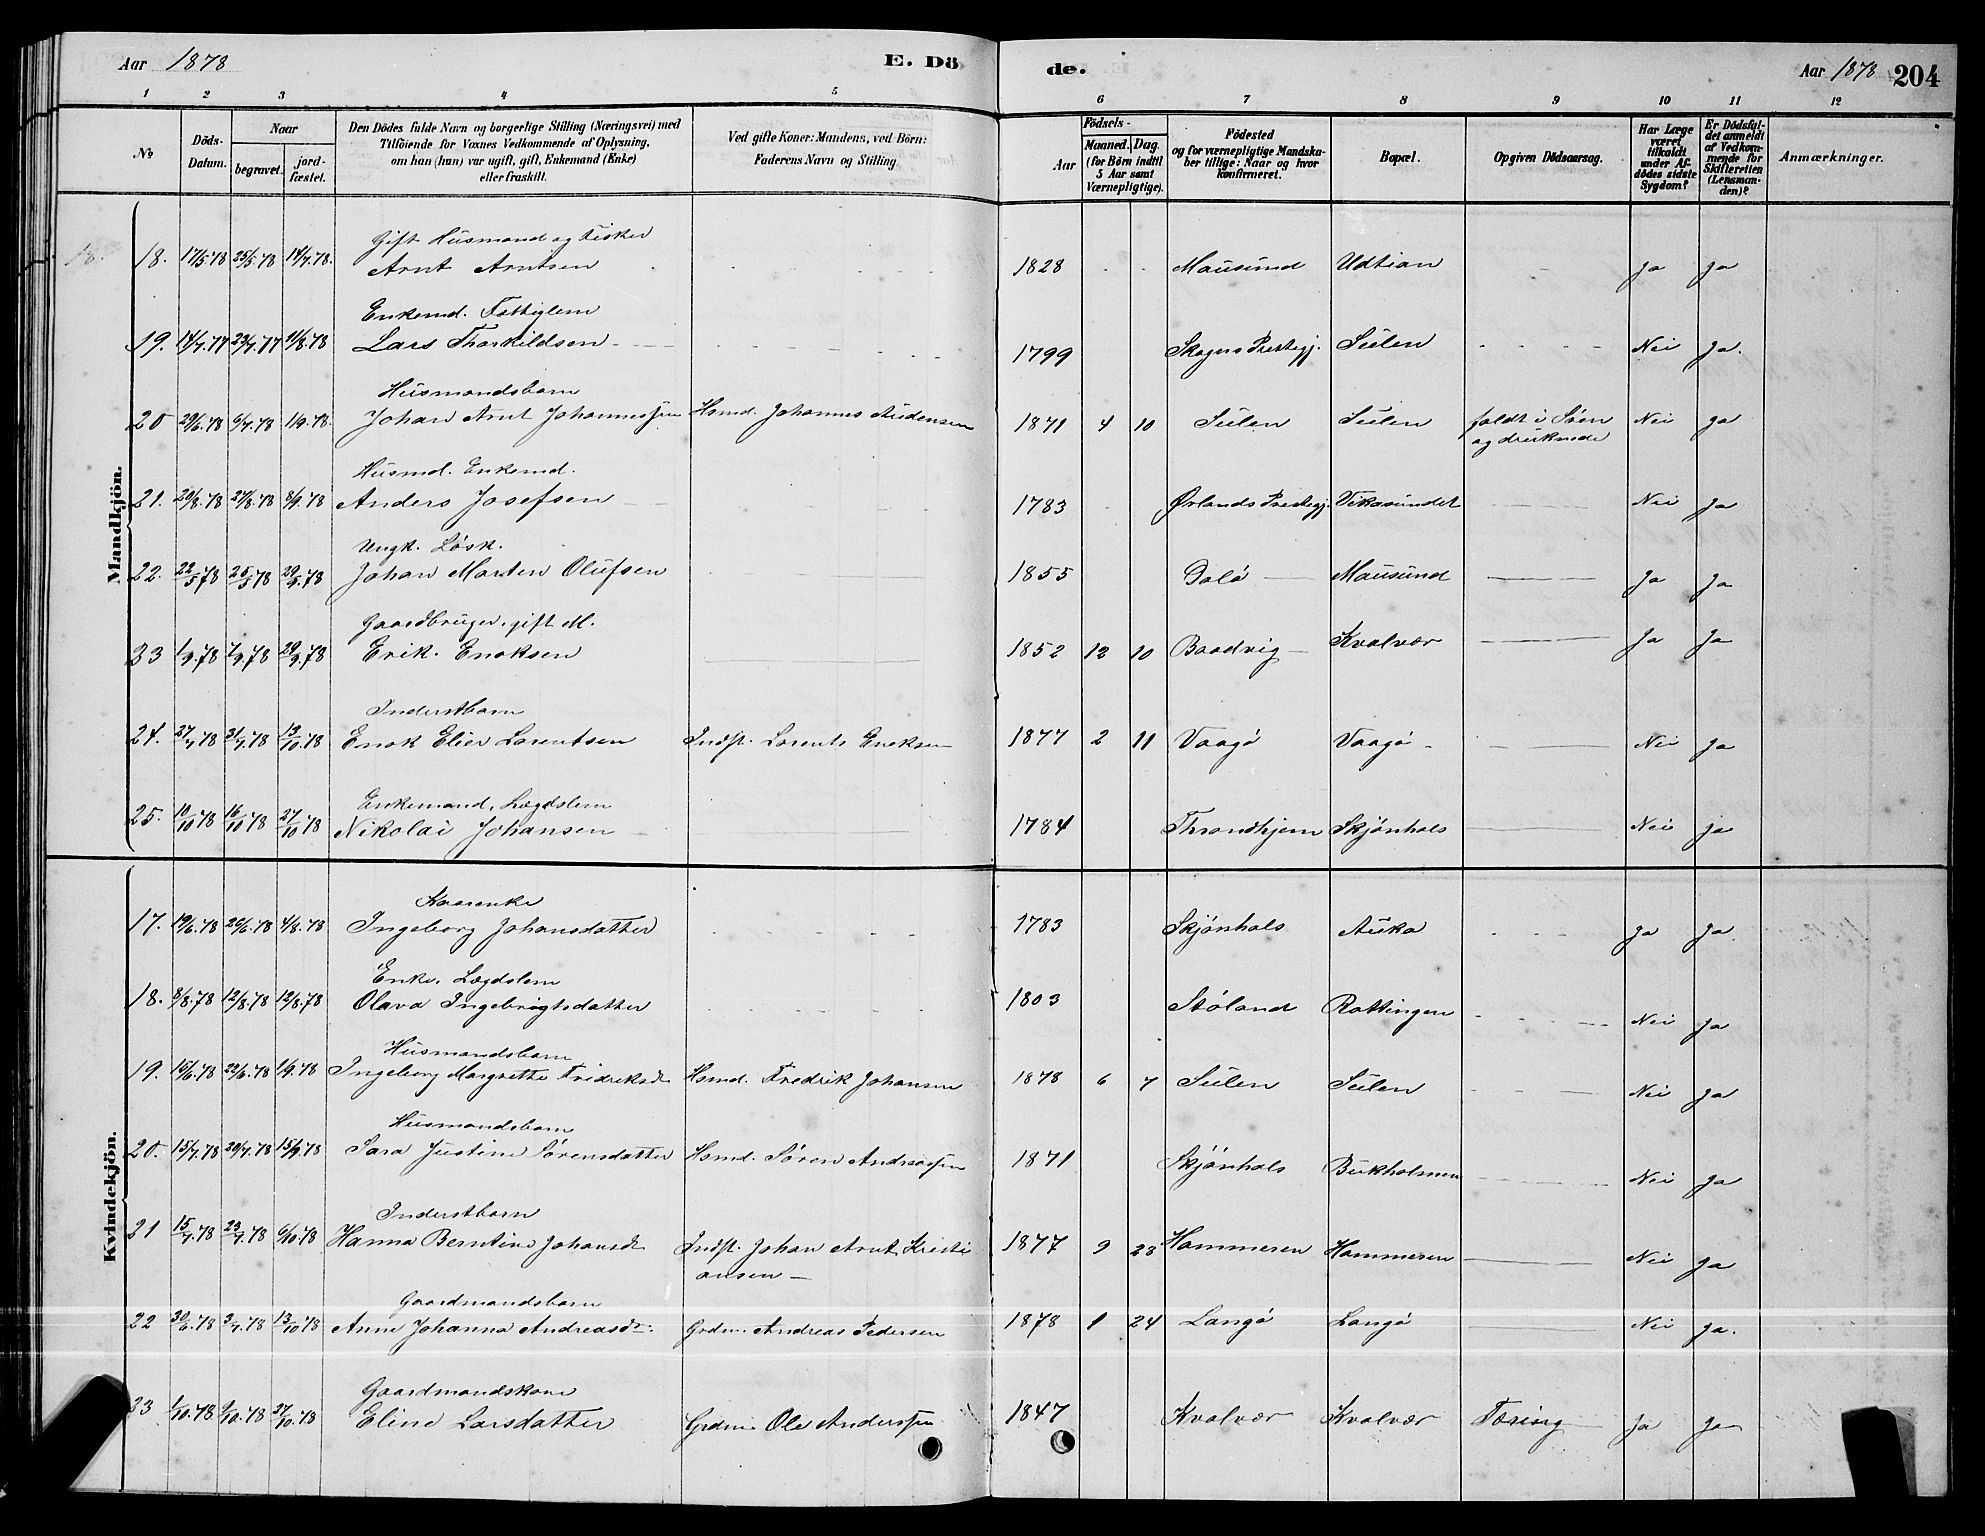 Aar 1878 E. Dö
de. Aar 1878 204
1 2 3 4 5 6 7 8 9 10 11 12
No
Döds-Datum.
Naar
begravet.
jordfæstet.
Den Dödes fulde Navn og borgerlige Stilling (Næringsvei) med
Tilföiende for Voxnes Vedkommende af Oplysning,
om han (hun) var ugift, gift, Enkemand (Enke)
eller fraskilt.
Ved gifte Koner: Mandens, ved Börn:
Faderens Navn og Stilling.
Födsels-
Aar
Maaned. Dag.
(for Börn indtil
5 Aar samt
Værnepligtige).
Födested
og for værnepligtige Mandskaber tillige: Naar og hvor
konfirmeret.
Bopæl.
Opgiven Dödsaarsag.
Har Læge været tilkaldt under Afdödes sidste Sygdom?
Er Dödsfaldet anmeldt af Vedkommende for Skifteretten (Lensmanden)?
Anmærkninger.
Mandkjön.
Gift Husmand og Fisker
18. 17/5.78 25/5.78 14/7.78. Arnt Arntsen 1828 Mausund Udtian Ja Ja
Enkemd. Fattiglem
19. 14/7.77 23/7.77 11/8.78 Lars Thorkildsen 1799 Skogns Prestegj. Sulen Nei Ja.
Husmandsbarn
20 29/6.78 6/7.78 1/9.78. Johan Arnt Johannessen Hsmd. Johannes Audensen 1871 4 10 Sulen Sulen faldt i Søen Nei Ja
og druknede
Husmd. Enkemd.
21. 20/8.78 27/8.78 8/9.78 Anders Josefsen 1783 Ørlands Prestegj. Vikasundet Nei Ja
Ungk. Løsk.
22. 22/5 78 25/5 78 29/9.78 Johan Martin Olufsen 1855 Dolø Mausund Ja Ja
Gaardbruger, gift M.
23 1/9.78 7/9.78 29/9.78 Erik Enoksen 1852 12 10 Baadvig Kvalvær Ja Ja
Inderstbarn
24. 27/7 78 31/7.78 13/10.78 Enok Elier Lorentsen Indst. Lorents Enoksen 1877 2 11 Vaagø Vaagø Nei Ja
Enkemand, Lægdslem
25. 10/10 78 16/10 78 27/10 78 Nikolai Johansen 1784 Throndhjem Skjønhals Nei ja
Kvindekjön.
Kaarenke
17. 19/6.78 26/6.78 4/8.78 Ingeborg Johansdatter 1783 Skjønhals Auka Ja Ja.
Enke. Lægdslem
18. 8/8.78 12/8.78 12/8.78 Olava Ingebrigtsdatter 1803 Støland Rottingen Nei Ja
Husmandsbarn
19. 15/6.78 22/6.78 1/9.78 Ingeborg Margrethe Fridriksd. Hsmd. Fredrik Johansen 1878 6 7 Sulen Sulen Nei Ja
Husmandsbarn
20. 15/7.78 20/7.78 15/9.78 Sara Justine Sørensdatter Hsmd. Søren Andreassen 1871 Skjønhals Bukholmen Nei Ja
Inderstbarn
21 15/7.78 23/7.78 6/10.78 Hanna Berntine Johansd. Indst. Johan Arnt Kristi 1877 9 23 Hammeren Hammeren Nei Ja
ansen
Gaardmandsbarn
22 30/6.78 3/7.78 13/10 78 Anne Johanna Andreasd. Grdm. Andreas Pedersen 1878 1 24 Langø Langø Nei Ja.
Gaardmandskone
23 1/10.78 9/10.78 27/10.78 Eline Larsdatter Grdm. Ole Anderssen 1847 Kvalvær Kvalvær Tæring Ja Ja